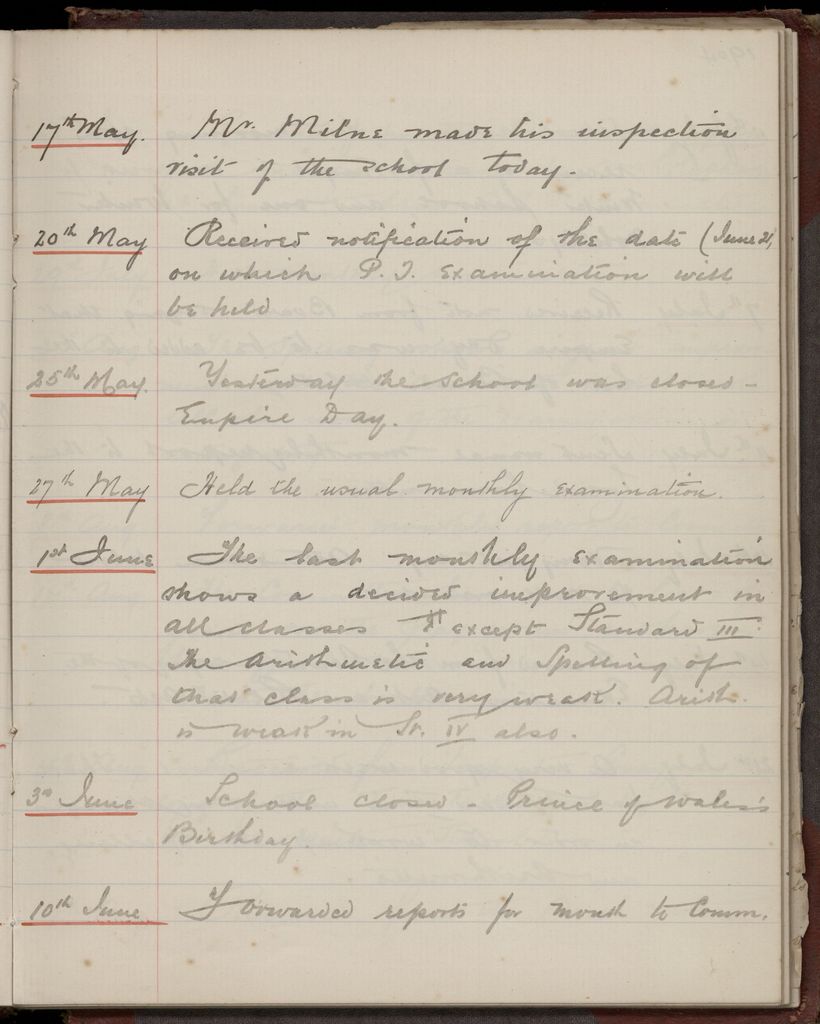 17th May. Mr. Milne made his inspection
visit of the school today.
20th May Received notification of the date (June 21,
on which P. T. Examination will
be held
25th May. Yesterday the School was closed -
Empire Day.
27th May Held the usual monthly examination.
1st June The last monthly examination
shows a decided improvement in
all classes except Standard III.
The Arithmetic and Spelling of
that class is very weak. Arith.
is weak in St. IV also.
3rd June School closed - Prince of Wales's
Birthday.
10th June Forwarded reports for month to Comm.